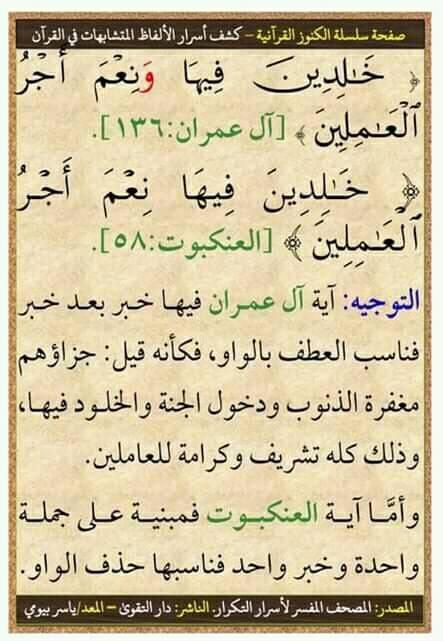 صفحة سلسلة الكنوز القرآنية – كشف أسرار الألفاظ المتشابهات في القرآن
﴿ خَٰلِدِينَ فِيهَا وَنِعْمَ أَجْرُ
ٱلْعَٰمِلِينَ ﴾ [آل عمران:١٣٦].
﴿ خَٰلِدِينَ فِيهَا نِعْمَ أَجْرُ
ٱلْعَٰمِلِينَ ﴾ [العنكبوت:٥٨].
التوجيه: آية آل عمران فيها خبر بعد خبر
فناسب العطف بالواو، فكأنه قيل: جزاؤهم
مغفرة الذنوب ودخول الجنة والخلود فيها،
وذلك كله تشريف وكرامة للعاملين.
وأمَّا آية العنكبوت فمبنية على جملة
واحدة وخبر واحد فناسبها حذف الواو.
المصدر: المصحف المفسر لأسرار التكرار. الناشر: دار التقوىٰ – المعد/ياسر بيومي